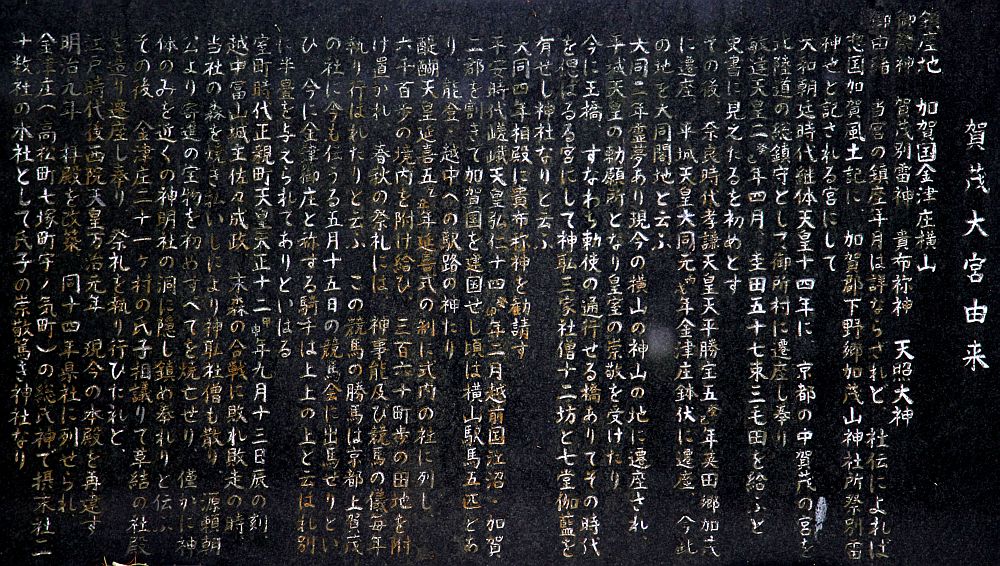 賀茂大宮由来
鎮座地 加賀国金津庄横山
御祭神 賀茂別雷神 貴布祢神 天照大神
御由緒 当宮の鎮座年月は詳ならされど 社伝によれば
惣国加賀風土記に 加賀郡下野郷加茂山神社所祭別雷
神也と記される宮にして
大和朝廷時代継体天皇十四年に 京都の中賀茂の宮を
北陸道の総鎮守として御所村に遷座し奉り
敏達天皇二年四月 圭田五十七束三毛田を給ふと
史書に見えたるを初めとす
その後 奈良時代孝謙天皇天平勝宝五年英田郷加茂
に遷座 平城天皇大同元年金津庄鉢伏に遷座 今此
の地を大同閣地と云ふ
大同二年霊夢あり現今の横山の神山の地に遷座され
平城天皇の勅願所となり皇室の崇敬を受けたり
今に王橋 すなわち勅使の通行せる橋ありてその時代
を想はるる宮にして神耻三家社僧十二坊と七堂伽藍を
有せし神社なりと云ふ
大同四年相殿に貴布祢神を勧請す
平安時代嵯峨天皇弘仁十四年二月越前国江沼・加賀
二郡を割きて 加賀国を建国せし頃は横山駅馬五匹とあ
り 能登・越中への駅路の神たり
醍醐天皇延喜五年延喜式の制に式内の社に列し
六千百歩の境内を附け給ひ 三百六十町歩の田地を附
け置かれ 春秋の祭礼には 神事能及び競馬の儀毎年
執り行はれたりと云ふ この競馬の勝馬は京都上賀茂
の社に今も行うる五月十五日の競馬会に出馬せりとい
ひ 今に金津御庄と称する騎手は上上の上と云はれ別
に半畳を与えられてありといはる
室町時代正親町天皇天正十二年九月十三日辰の刻
越中富山城主佐々成政 末森の合戦に敗れ敗走の時
当社の森を焼き払いしにより神耻社僧も散り 源頼朝
公より寄進の宝物を初めすべてを焼亡せり 僅かに神
体のみを近くの神明社の洞に隠し鎮め奉れりと伝ふ
その後 金津庄二十一ヶ村の氏子相議りて草結の社殿
を造り遷座し奉り 祭礼を執り行ひたれど
江戸時代後西院天皇万治元年 現今の本殿を再建す
明治九年 拝殿を改築 同十四年県社に列せられ
金津庄(高松町七塚町宇ノ気町)の総氏神で摂末社二
十数社の本社として氏子の崇敬篤き神社なり